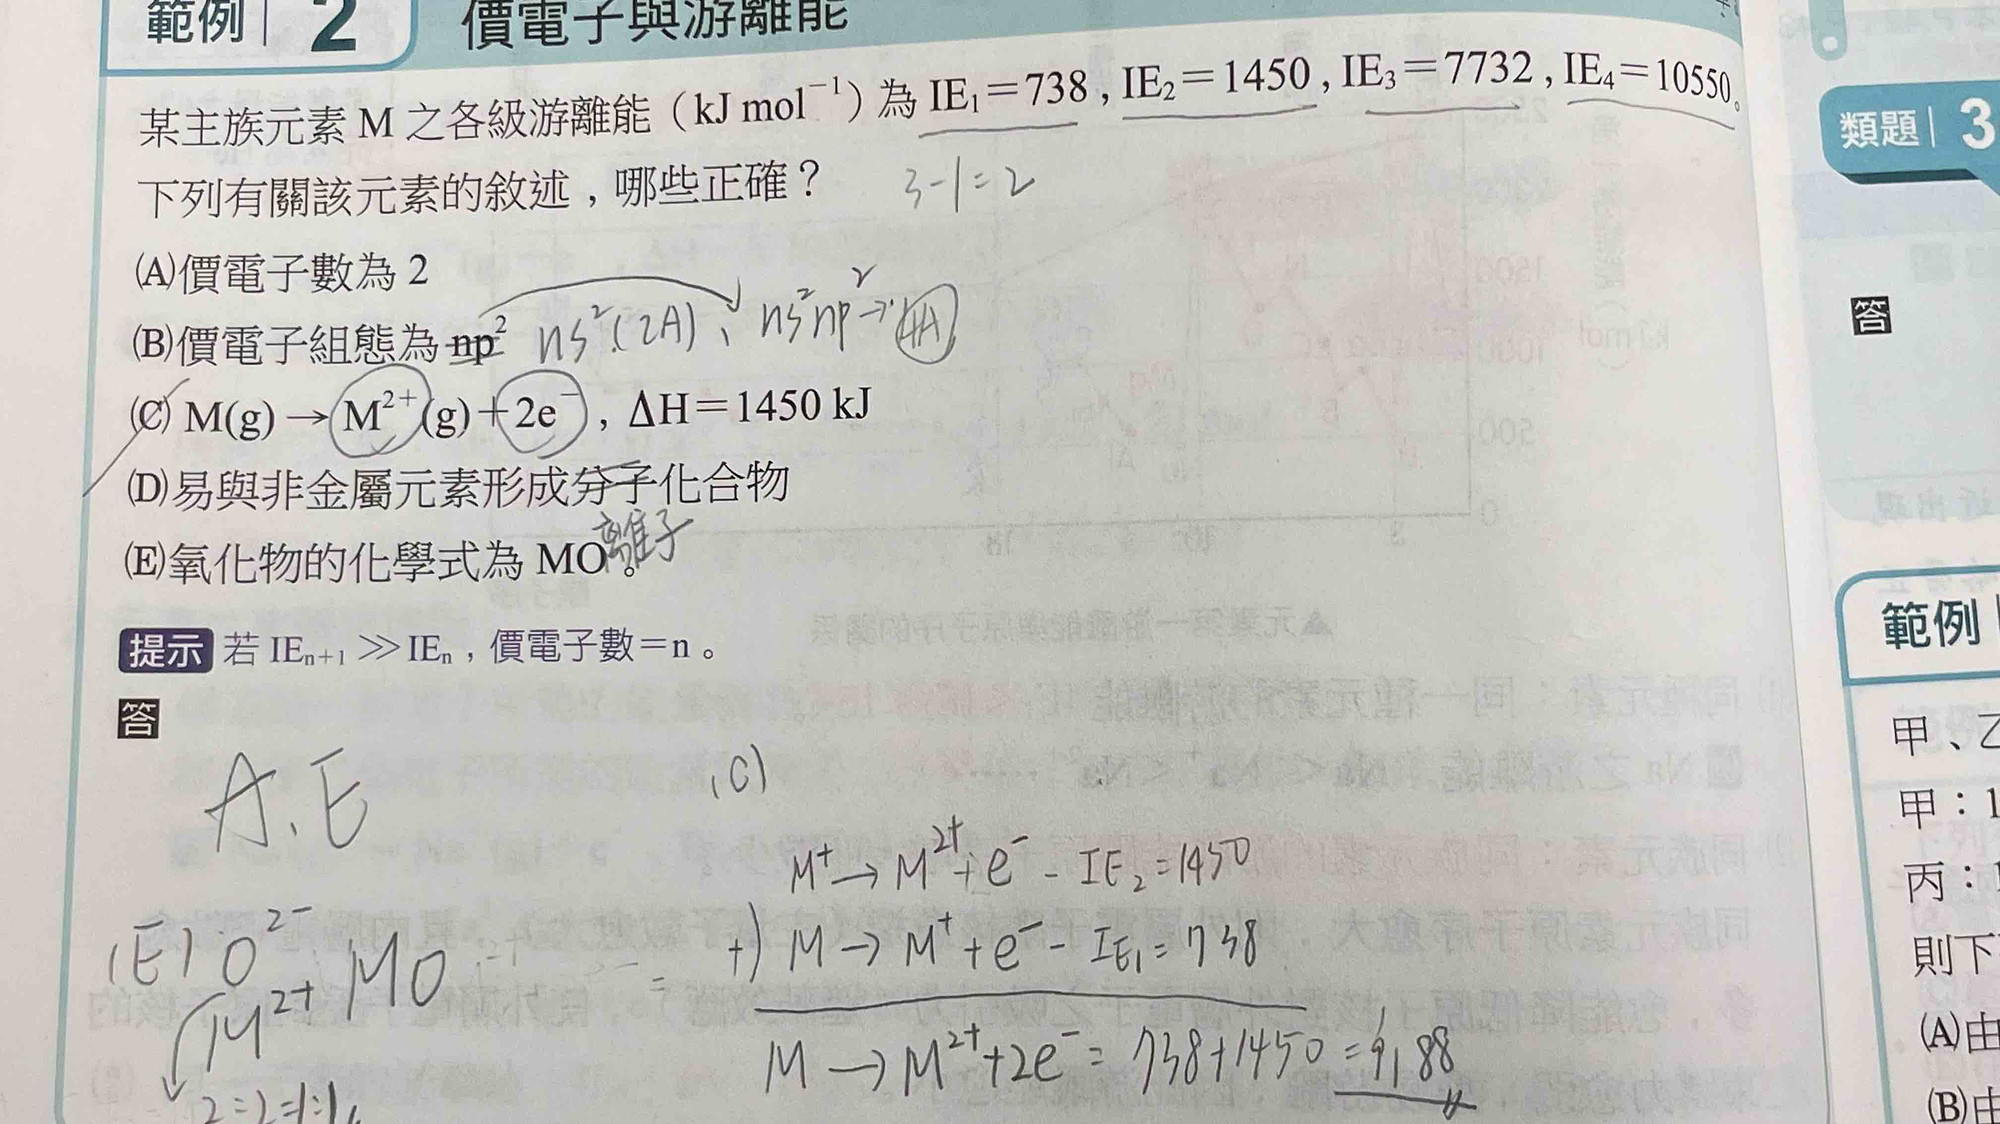 範例 2 價電子與游離能
某主族元素 M 之各級游離能（kJ mol⁻¹）為 IE₁＝738，IE₂＝1450，IE₃＝7732，IE₄＝10550。
下列有關該元素的敘述，哪些正確？ 3-1=2
(A)價電子數為 2
(B)價電子組態為 np² ns²(2A)、ns²np²→4A
(C) M(g) → M²⁺(g)＋2e⁻，ΔH＝1450 kJ
(D)易與非金屬元素形成分子化合物
離子
(E)氧化物的化學式為 MO。
提示 若 IEₙ₊₁ ≫ IEₙ，價電子數＝n。
答
A、E
(C)
M⁺→M²⁺+e⁻ - IE₂=1450
+) M→M⁺+e⁻ - IE₁=738
M→M²⁺+2e⁻= 738+1450
(E) O²⁻ MO
M²⁺
類題 3
答
範例
甲、乙
甲：1
丙：
則下
(A)由
(B)由